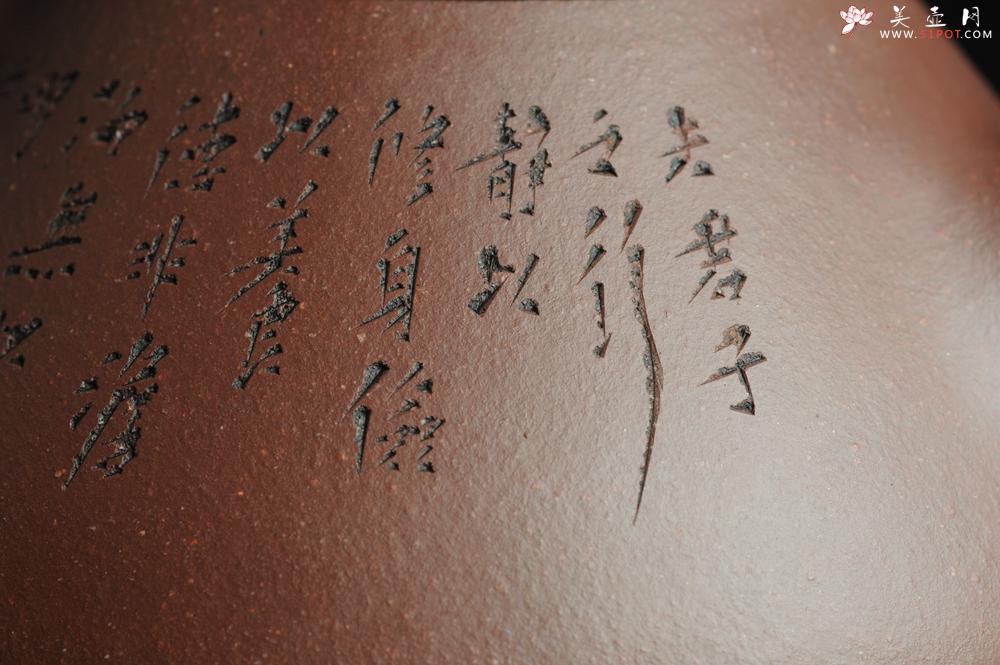 夫君子
之行
静以
修身儉
以養
德非澹
泊無
美壶网
WWW.51POT.COM